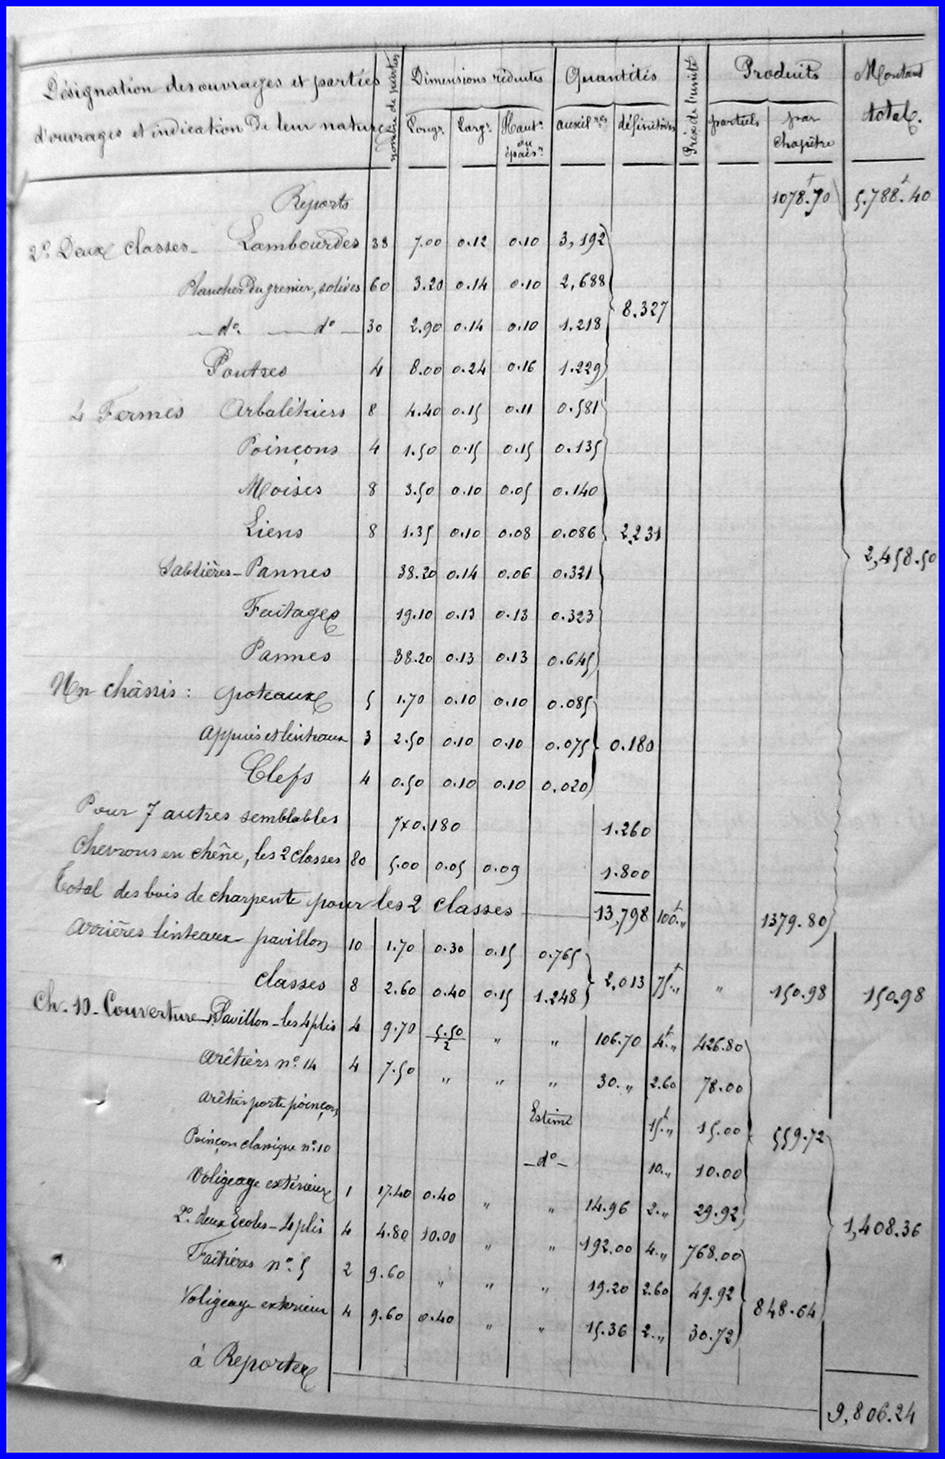 Désignation des ouvrages et parties d'ouvrages et indication de leur nature
nombre de parties
Dimensions réduites
Long^r. Larg^r. Haut^r. ou épaiss^r
Quantités
auxil^res définitives
Prix de l'unité
Produits
partiels par chapitre
Montant total.
Reports 1078.70 5.788.40
2° Deux classes - Lambourdes 38 7.00 0.12 0.10 3,192
Plancher du grenier, solives 60 3.20 0.14 0.10 2,688
8.327
— d° — d° — 30 2.90 0.14 0.10 1.218
Poutres 4 8.00 0.24 0.16 1.229
4 Fermes Arbalétriers 8 4.40 0.15 0.11 0.581
Poinçons 4 1.50 0.15 0.15 0.135
Moises 8 3.50 0.10 0.05 0.140
Liens 8 1.35 0.10 0.08 0.086 2,231
2,458.50
Sablières - Pannes 38.20 0.14 0.06 0.321
Faitages 19.10 0.13 0.13 0.323
Pannes 38.20 0.13 0.13 0.645
Un châssis : poteaux 5 1.70 0.10 0.10 0.085
Appuis et linteaux 3 2.50 0.10 0.10 0.075 0.180
Clefs 4 0.50 0.10 0.10 0,020
Pour 7 autres semblables 7x0.180 1.260
Chevrons en chêne, les 2 classes 80 5.00 0.05 0.09 1.800
Total des bois de charpente pour les 2 classes 13,798 100^f „ 1379.80
Arrières linteaux pavillon 10 1.70 0.30 0.15 0.765
classes 8 2.60 0.40 0.15 1.248 2,013 75^f „ „ 150.98 150.98
Ch. 10 - Couverture - Pavillon - les 4 plis 4 9.70 5.50/2 „ „ 106.70 4^f „ 426.80
Arêtiers n° 14 4 7.50 „ „ „ 30. „ 2.60 78.00
Arêtier porte poinçon Estimé 15^f „ 15.00 559.72
Poinçon classique n° 10 — d° — 10. „ 10.00
Voligeage extérieur 1 17.40 0.40 „ „ 14.96 2. „ 29.92
2° deux Écoles - 4 plis 4 4.80 10.00 „ „ 192.00 4. „ 768.00
1,408.36
Faîtières n° 5 2 9.60 „ „ „ 19.20 2.60 49.92
848.64
Voligeage extérieur 4 9.60 0.40 „ „ 15.36 2. „ 30.72
à Reporter 9,806.24